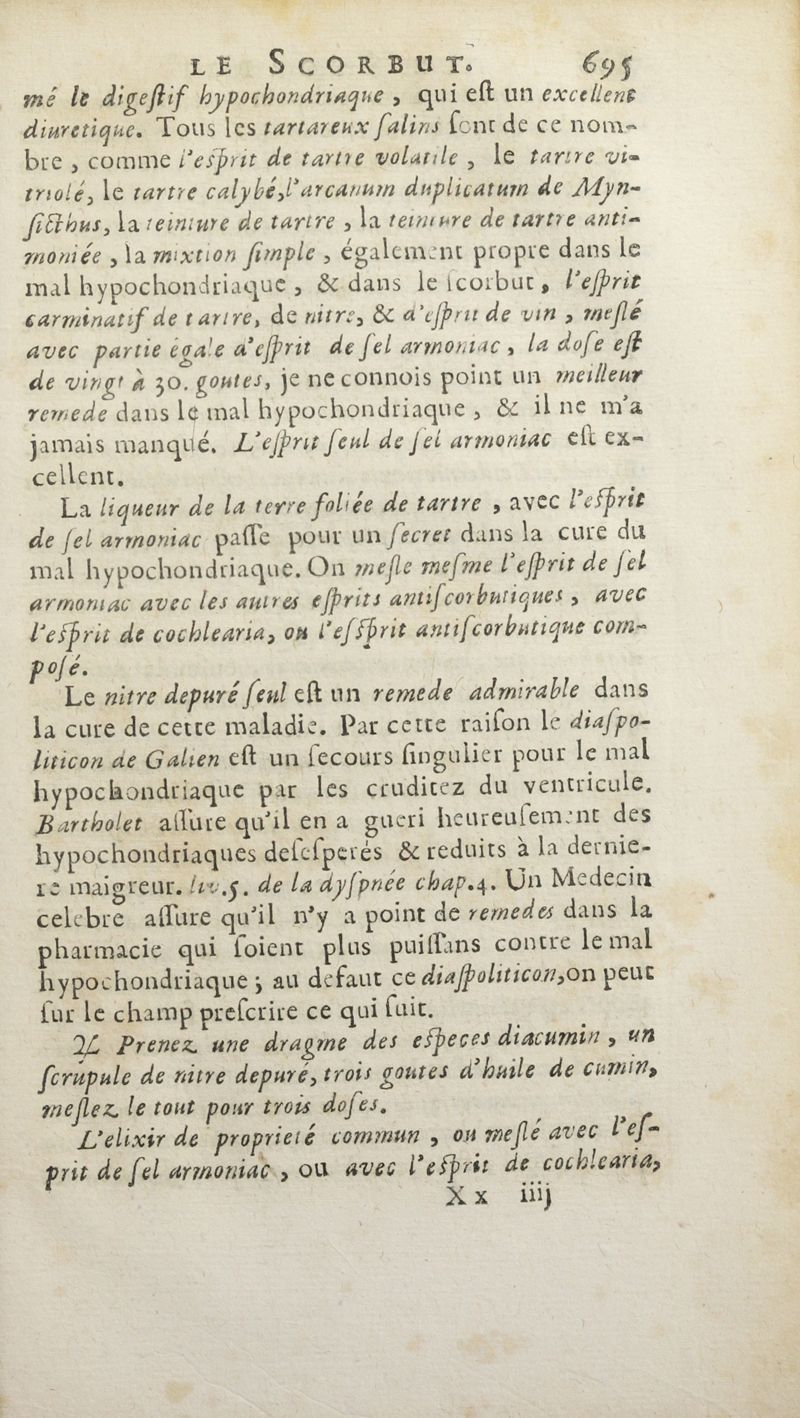 LE SCORBUT. 695
mé le digeſtif hypochondriaque, qui eſt un excellent
diuretique. Tous les tartareux ſalins ſont de ce nom-
bre, comme l'eſprit de tartre volatile, le tartre vi-
triolé, le tartre calybé, l'arcanum duplicatum de Myn-
ſicthus, la teinture de tartre, la teinture de tartre anti-
moniée, la mixtion ſimple, également propre dans le
mal hypochondriaque, & dans le ſcorbut, l'eſprit
carminatif de tartre, de nitre, & d'eſprit de vin, meſlé
avec partie égale d'eſprit de ſel armoniac, la doſe eſt
de vingt à 30. goutes, je ne connois point un meilleur
remede dans le mal hypochondriaque, & il ne m'a
jamais manqué. L'eſprit ſeul de ſel armoniac eſt ex-
cellent.
La liqueur de la terre foliée de tartre, avec l'eſprit
de ſel armoniac paſſe pour un ſecret dans la cure du
mal hypochondriaque. On meſle meſme l'eſprit de ſel
armoniac avec les autres eſprits antiſcorbutiques, avec
l'eſprit de cochlearia, ou l'eſſprit antiſcorbutique com-
poſé.
Le nitre depuré ſeul eſt un remede admirable dans
la cure de cette maladie. Par cette raiſon le diaſpo-
liticon de Galien eſt un ſecours ſingulier pour le mal
hypochondriaque par les cruditez du ventricule.
Bartholet aſſure qu'il en a gueri heureuſement des
hypochondriaques deſeſperés & reduits à la dernie-
re maigreur. liv. 5. de la dyſpnée chap. 4. Un Medecin
celebre aſſure qu'il n'y a point de remedes dans la
pharmacie qui ſoient plus puiſſans contre le mal
hypochondriaque; au defaut ce diaſpoliticon, on peut
ſur le champ preſcrire ce qui ſuit.
♃ Prenez une dragme des eſpeces diacumin, un
ſcrupule de nitre depuré, trois goutes d'huile de cumin,
meſlez le tout pour trois doſes.
L'elixir de proprieté commun, ou meſlé avec l'eſ-
prit de ſel armoniac, ou avec l'eſprit de cochlearia,
Xx iiij